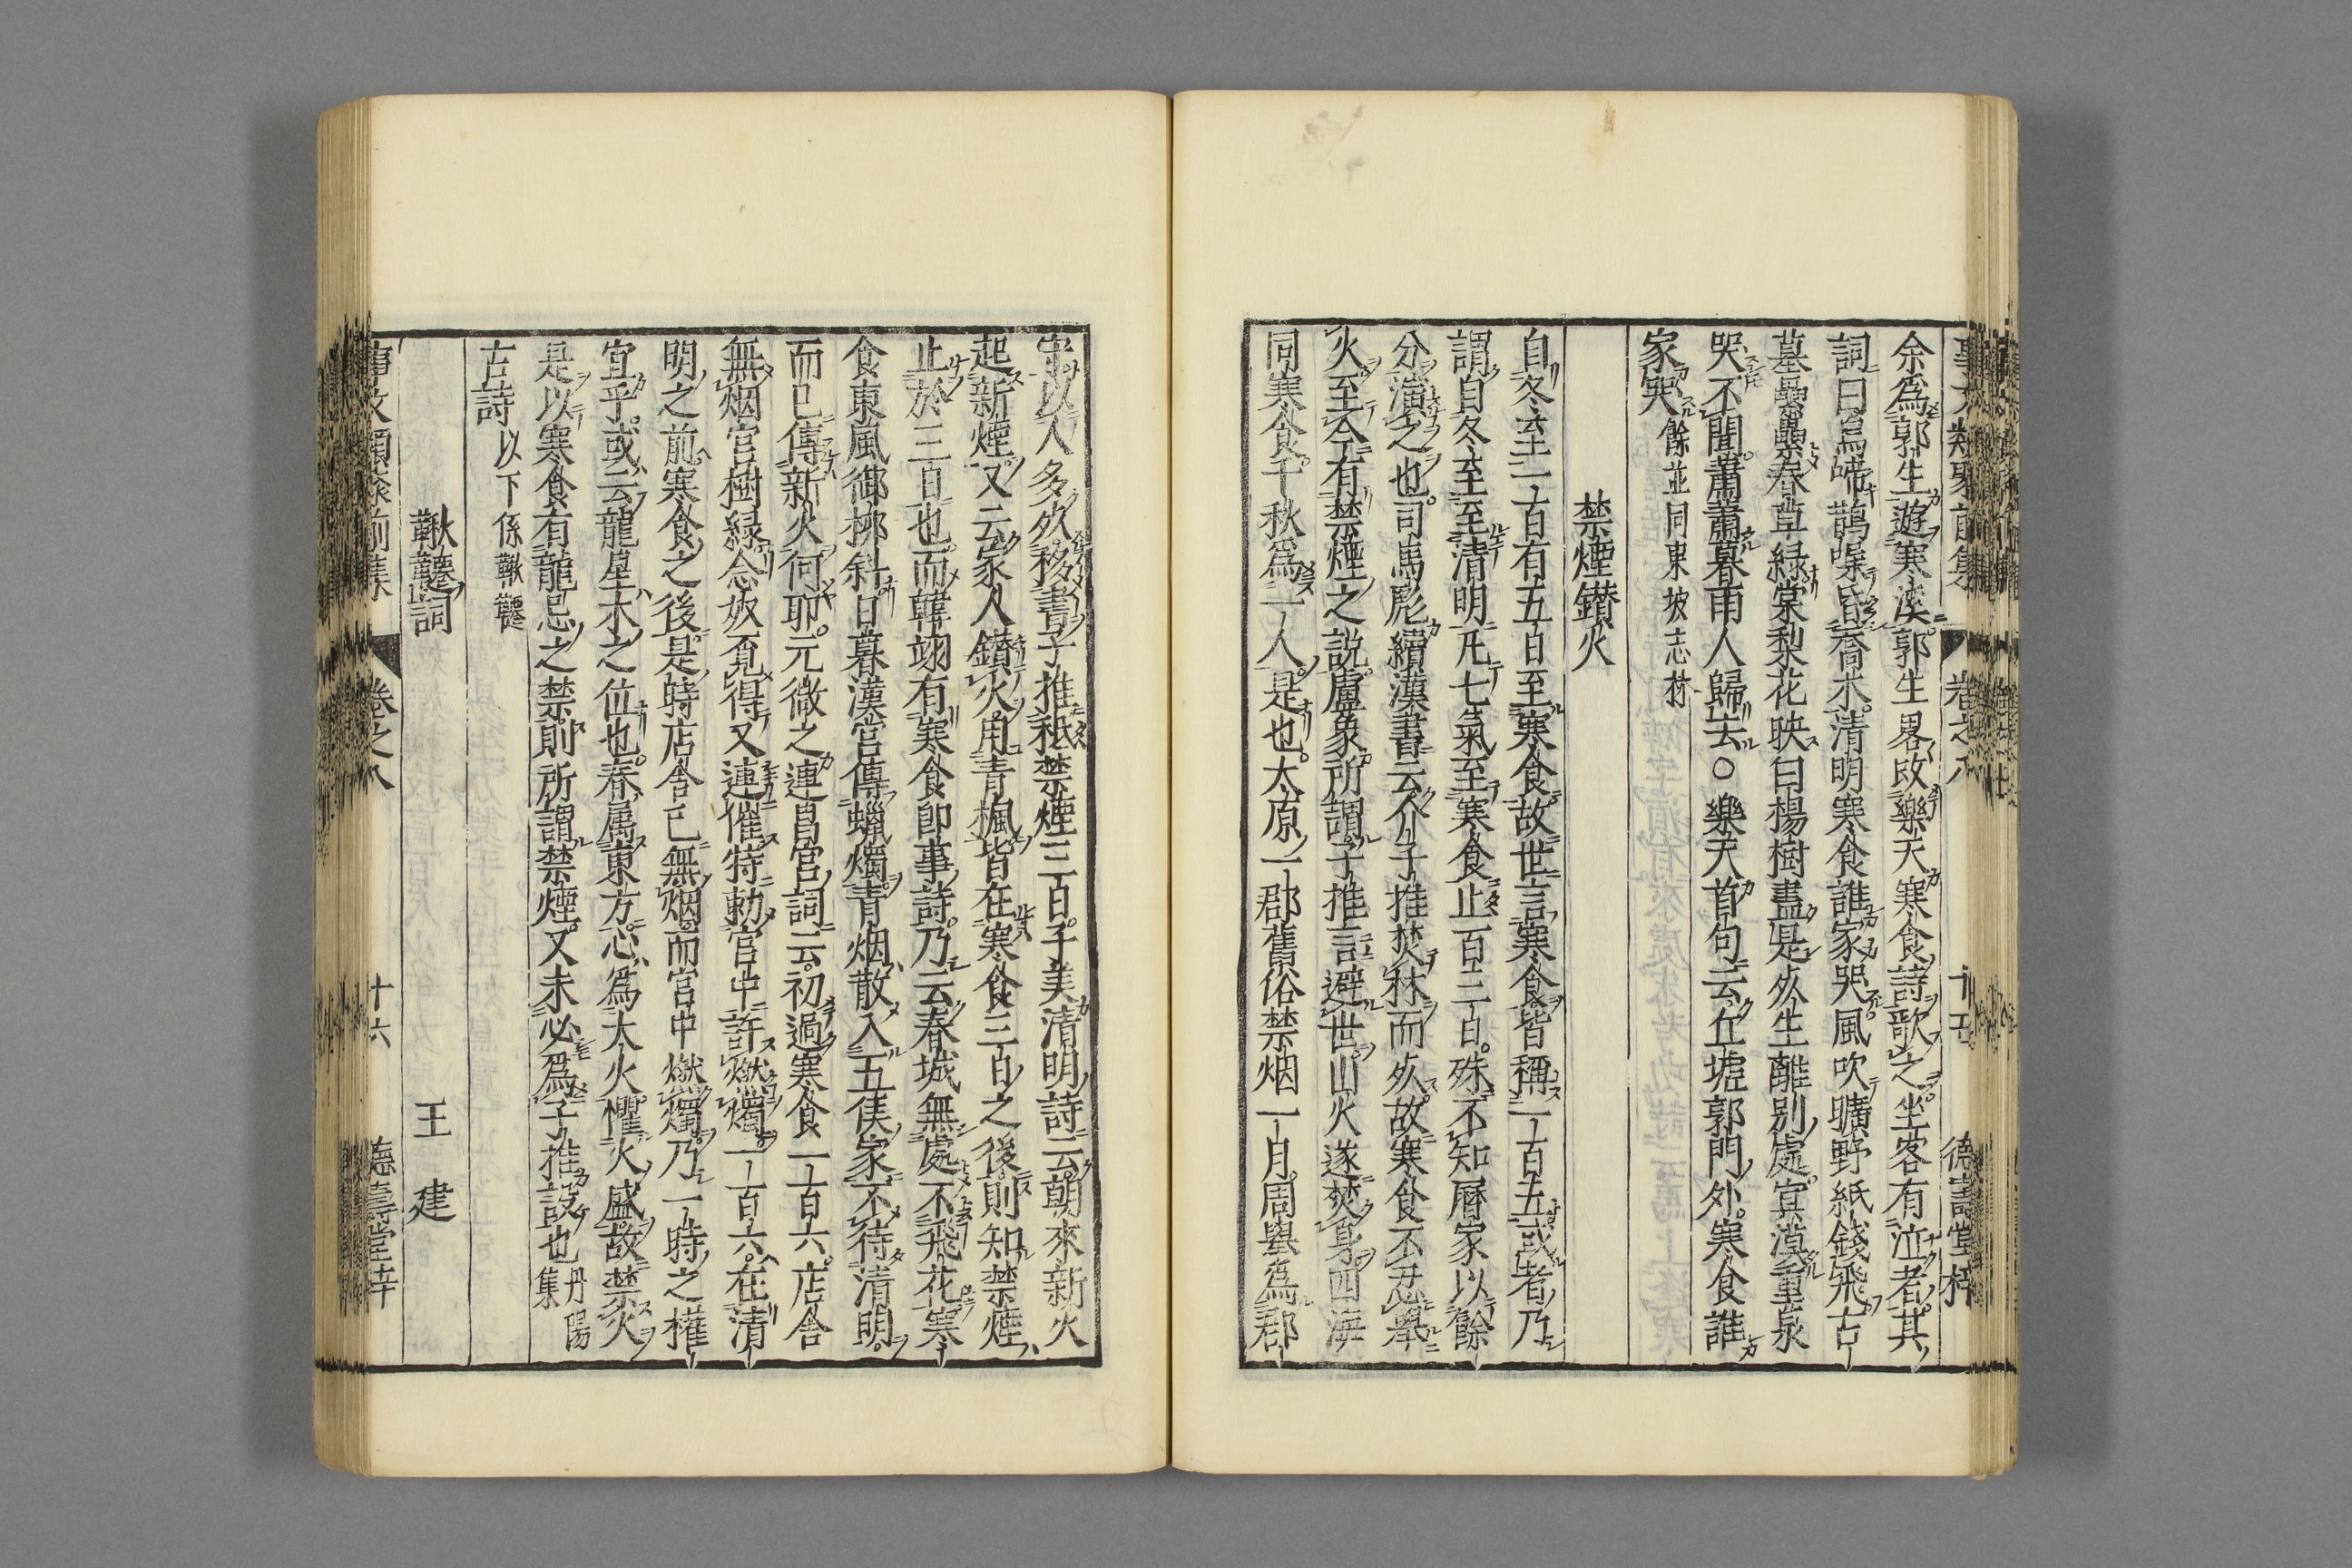 事文類聚前集 卷之八 十五 德壽堂梓
余爲郭生遊寒溪郭生畧改樂天寒食詩歌之坐客有泣者其
詞曰烏啼鵲噪昏喬木清明寒食誰家哭風吹曠野紙錢飛古
墓纍纍春草緑棠梨花映白楊樹盡是死生離別處冥漠重泉
哭不聞蕭蕭暮雨人歸去○樂天首句云丘墟郭門外寒食誰
家哭餘並同東坡志林
禁煙鑚火
自冬至一百有五日至寒食故世言寒食皆稱一百五或者乃
謂自冬至至清明凡七氣至寒食止百三日殊不知曆家以餘
分演之也司馬彪續漢書云介子推焚林而死故寒食不忍舉
火至今有禁煙之説盧象所謂子推言避世山火遂焚身四海
同寒食千秋爲一人是也太原一郡舊俗禁烟一月周舉爲郡
守以人多死移書子推秪禁煙三百子美清明詩云朝來新火
起新煙又云家人鑚火用青楓皆在寒食三日之後則知禁煙
止於三百也而韓翃有寒食即事詩乃云春城無處不飛花寒
食東風御柳斜日暮漢宫傳蠟燭青烟散入五侯家不待清明
而已傳新火何耶元微之連昌宫詞云初過寒食一百六店舎
無烟宫樹緑念奴覓得又連催特勅宫中許燃燭一百六在清
明之前寒食之後是時店舎已無烟而宫中燃燭乃一時之權
宜乎或云龍星木之位也春属東方心爲大火懼火盛故禁火
是以寒食有龍忌之禁則所謂禁煙又未必爲子推設也丹陽集
古詩以下係鞦韆
鞦韆詞 王建
事文類聚前集 卷之八 十六 德壽堂梓